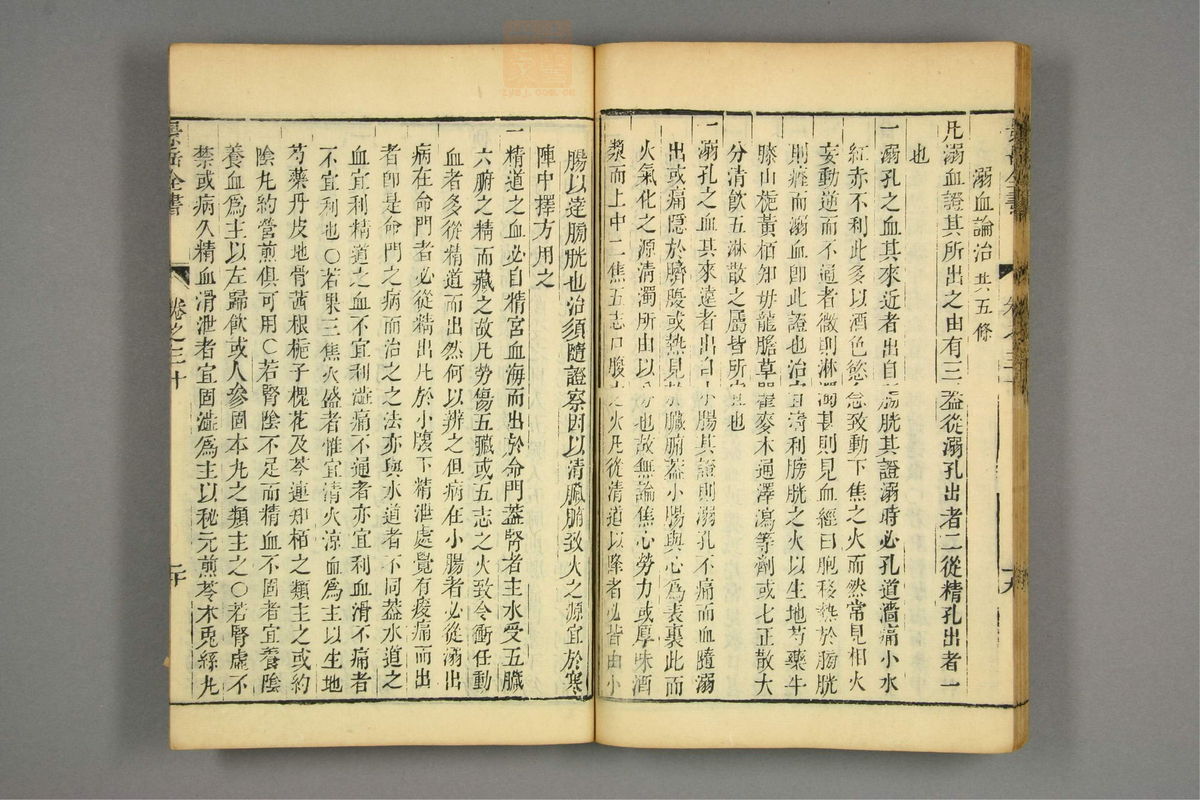 溺血論治共五條
凡溺血證其所出之由有三蓋從溺孔出者二從精孔出者一
也
一溺孔之血其來近者出自膀胱其證溺時必孔道濇痛小水
紅赤不利此多以酒色慾念致動下焦之火而然常見相火
妄動逆而不通者微則淋濁甚則見血經曰胞移熱於膀胱
則癃而溺血卽此證也治宜清利膀胱之火以生地芍藥牛
膝山梔黃栢知毋龍膽草瞿麥木通澤瀉等劑或七正散大
分清飲五淋散之屬皆所宜也
一溺孔之血其來遠者出自小腸其證則溺孔不痛而血隨溺
出或痛隱於臍腹或熱見於臟腑蓋小腸與心爲表裏此丙
火氣化之源清濁所由以分也故無論焦心勞力或厚味酒
漿而上中二焦五志口腹之火凡從清道以降者必皆由小
景岳全書
卷之三十
十九
腸以達膀胱也治須隨證察因以清臟腑致火之源宜於寒
陣中擇方用之
一精道之血必自精宮血海而出於命門蓋腎者主水受五臟
六腑之精而藏之故凡勞傷五臟或五志之火致令衝任動
血者多從精道而出然何以辨之但病在小腸者必從溺出
病在命門者必從精出凡於小腹下精泄處覺有痠痛而出
者卽是命門之病而治之之法亦與水道者不同蓋水道之
血宜利精道之血不宜利濇痛不通者亦宜利血滑不痛者
不宜利也○若果三焦火盛者惟宜清火涼血爲主以生地
芍藥丹皮地骨茜根梔子槐花及芩連知栢之類主之或約
陰丸約營煎俱可用○若腎陰不足而精血不固者宜養陰
養血爲主以左歸飲或人參固本丸之類主之○若腎虛不
禁或病久精血滑泄者宜固濇爲主以秘元煎苓术兎絲丸
景岳全書
卷之三十
二十